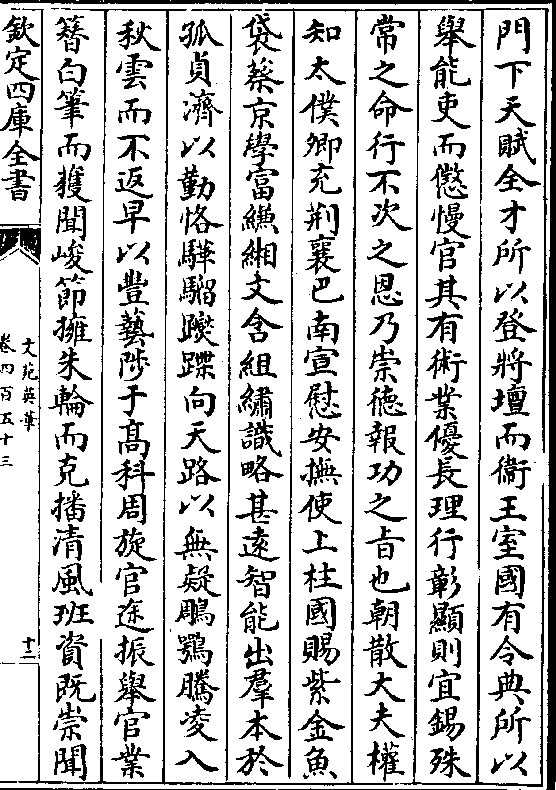 門下天賦全才所以登將壇而衞王室國有令典所以
舉能吏而懲慢官其有術業優長理行彰顯則宜錫殊
常之命行不次之恩乃崇德報功之旨也朝散大夫權
知太僕卿充荆襄巴南宣慰安撫使上柱國賜紫金魚
袋蔡京學富縑緗文含組繡識略甚遠智能出羣本於
孤貞濟以勤恪驊騮蹀躞向天路以無疑鵰鶚騰凌入
秋雲而不返早以豐藝陟于髙科周旋官途振舉官業
簪白筆而獲聞峻節擁朱輪而克播清風班資既崇聞
欽定四庫全書
文苑英華
卷四百五十三
十二